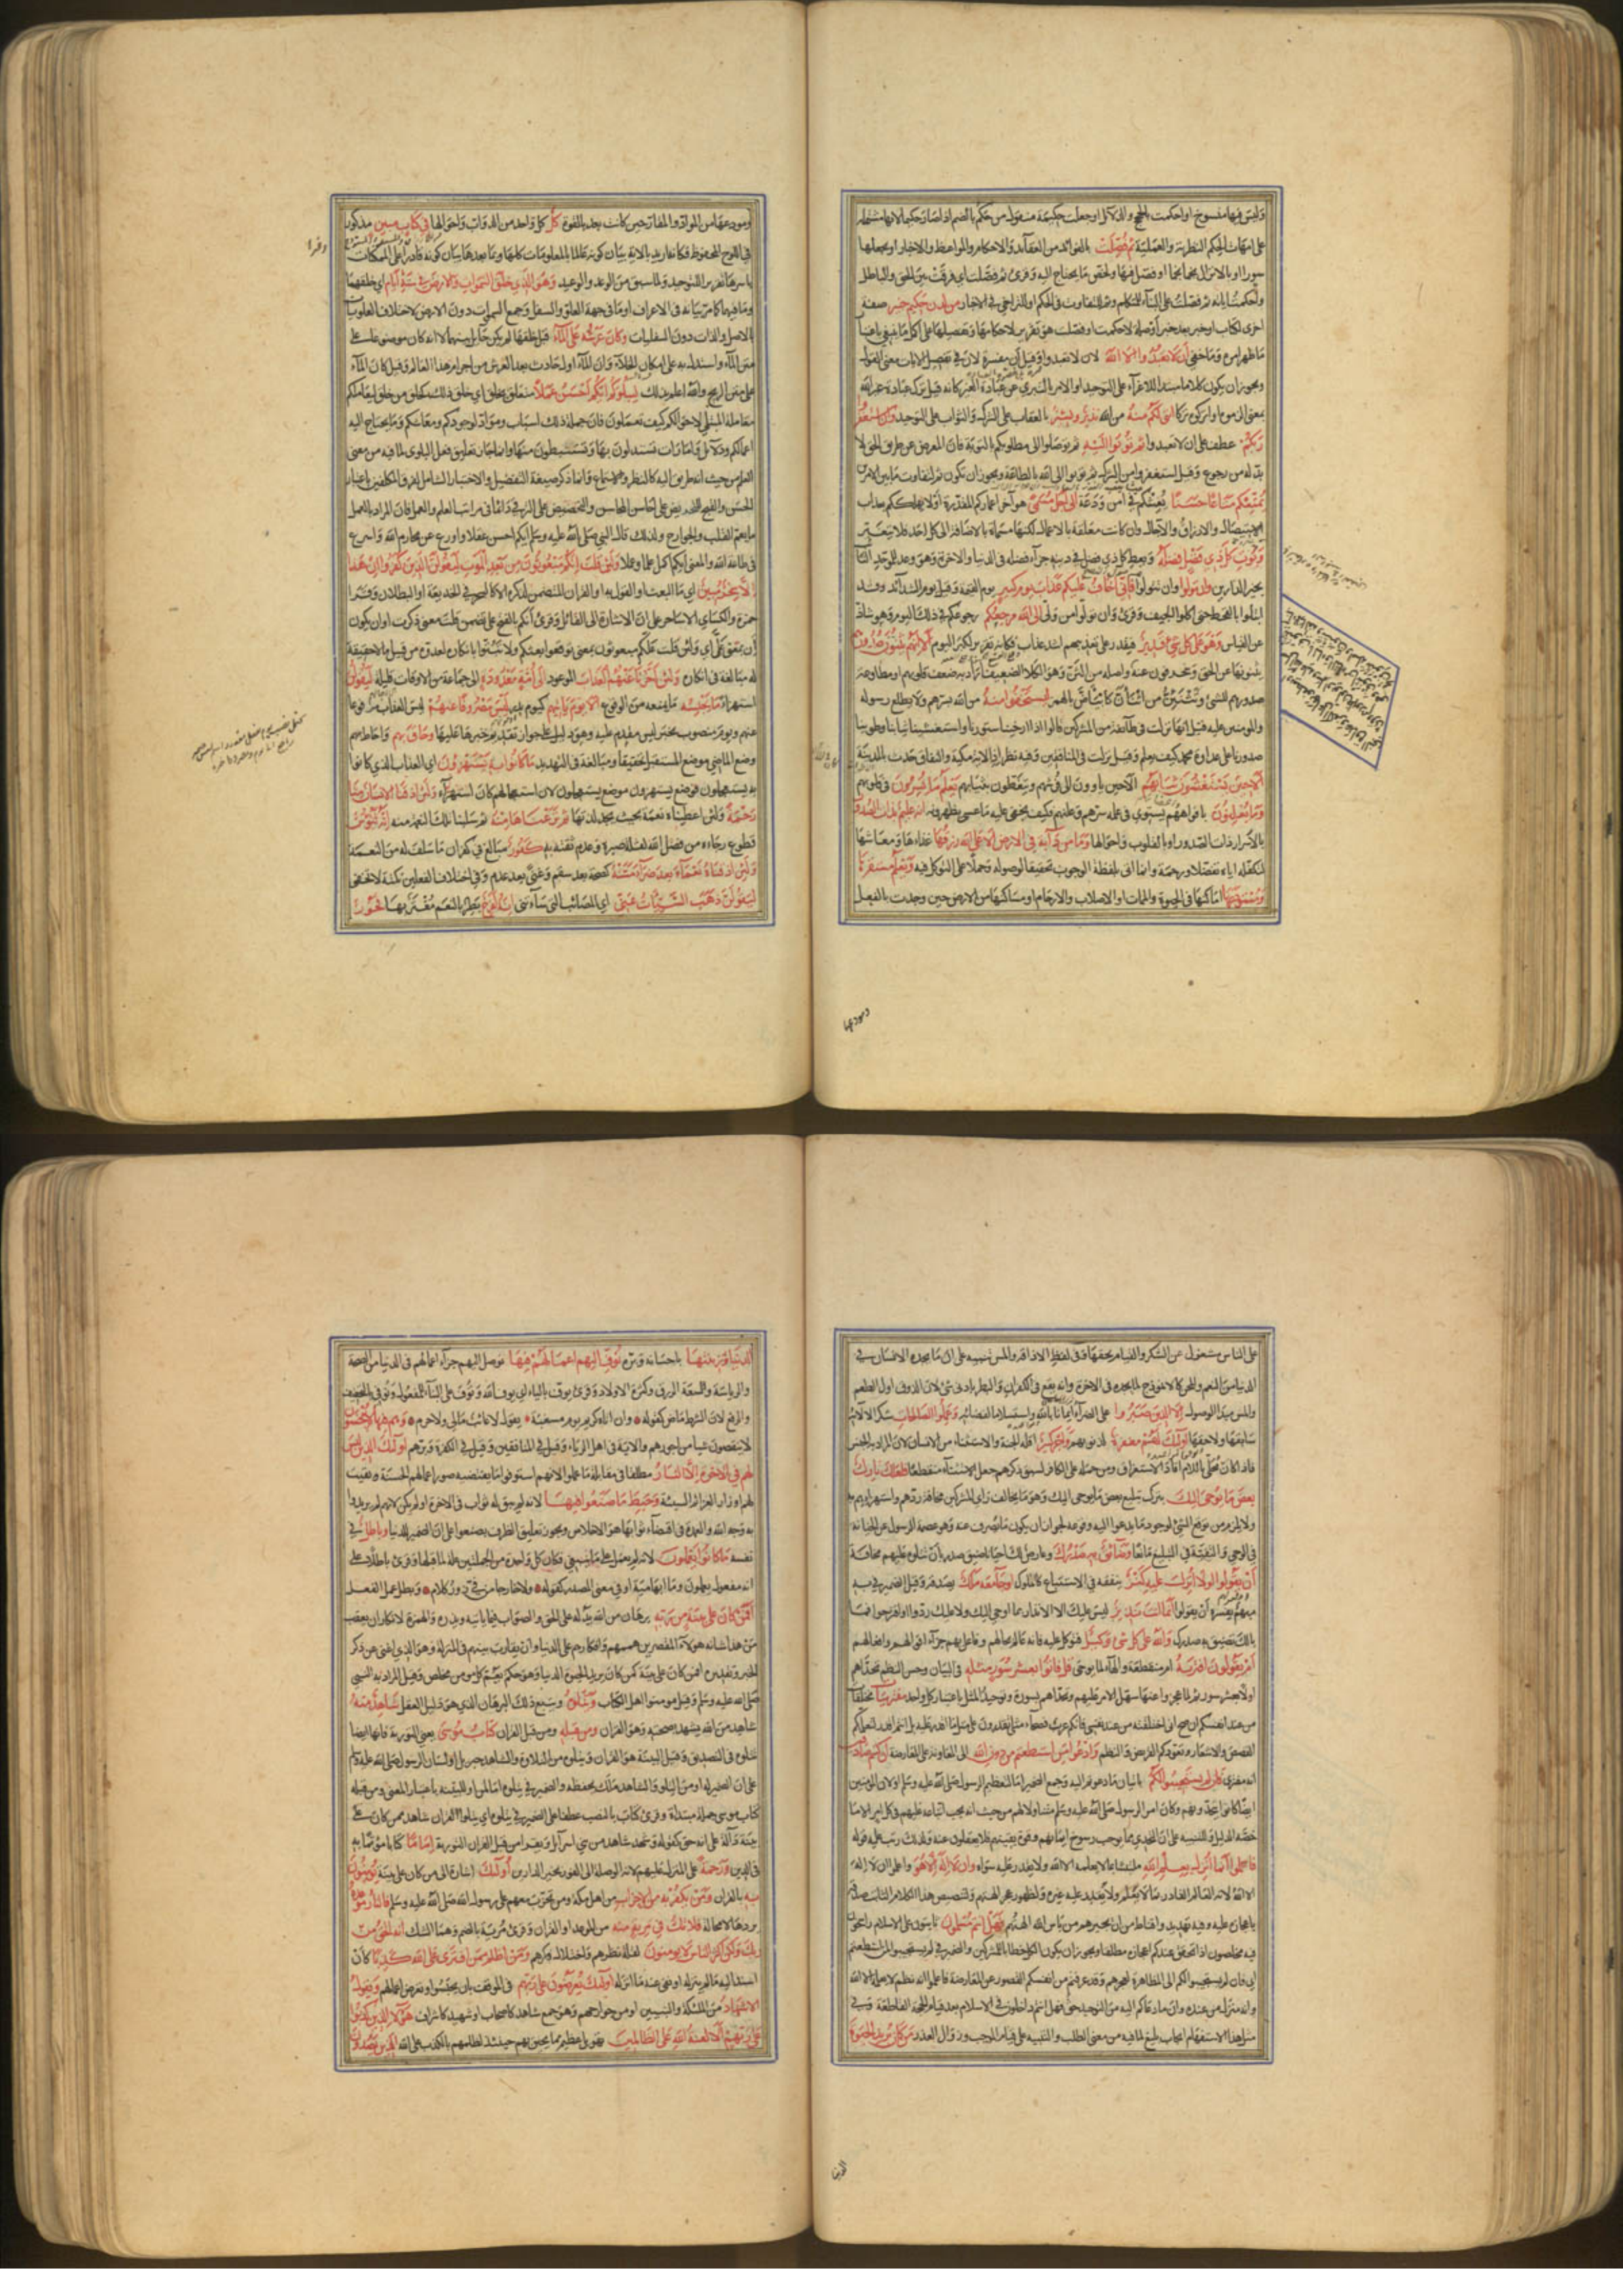 وليس فيها منسوخ او احكمت بالحجج والدلائل او جعلت حكيمة منقول من حكم بالضم اذا صار حكيما لانها مشتملة
على امهات الحكم النظرية والعملية ثم فصلت بالفوائد من العقائد والاحكام والمواعظ والاخبار او بجعلها
سورا او بالانزال نجما نجما او فصل فيها ولخص ما يحتاج اليه وقرئ ثم فصلت اي فرقت بين الحق والباطل
واحكمت اياته ثم فصلت على البناء للمتكلم وثم للتفاوت في الحكم او للتراخي في الاخبار من لدن حكيم خبير صفة
اخرى لكتاب او خبر بعد خبر او صلة لاحكمت او فصلت وهو تقرير لاحكامها وتفصيلها على اكمل ما ينبغي باعتبار
ما ظهر امره وما خفي ان لا تعبدوا الا الله لان لا تعبدوا وقيل ان مفسرة لان في تفصيل الايات معنى القول
ويجوز ان يكون كلاما مبتدا للاغراء على التوحيد او الامر بالتبري عن عبادة الغير كانه قيل ترك عبادة غير الله
بمعنى الزموه او اتركوه تركا انني لكم منه من الله نذير وبشير بالعقاب على الشرك والثواب على التوحيد وان استغفروا
ربكم عطف على ان لا تعبدوا ثم توبوا اليه ثم توصلوا الى مطلوبكم بالتوبة فان المعرض عن طريق الحق لا
بد له من رجوع وقيل استغفروا من الشرك ثم توبوا الى الله بالطاعة ويجوز ان يكون ثم لتفاوت ما بين الامرين
يمتعكم متاعا حسنا يعيشكم في امن ودعة الى اجل مسمى هو آخر اعماركم المقدرة او لا يهلككم بعذاب
الاستيصال والارزاق والآجال وان كانت متعلقة بالاعمال لكنها مسماة بالاضافة الى كل احد فلا يتغير
ويؤت كل ذي فضل فضله ويعط كل ذي فضل في دينه جزاء فضله في الدنيا والاخرة وهو وعد للموحد التائب
بخير الدارين وان تولوا وان تتولوا فاني اخاف عليكم عذاب يوم كبير يوم القيمة وقيل يوم الشدائد وقد
ابتلوا بالقحط حتى اكلوا الجيف وقرئ وان تولوا من ولي الى الله مرجعكم رجوعكم في ذلك اليوم وهو شاذ
عن القياس وهو على كل شئ قدير فيقدر على تعذيبهم اشد عذاب فكانه تقرير لكبر اليوم الا انهم يثنون صدورهم
يثنونها عن الحق وينحرفون عنه
صدورهم للثنى
والمؤمنين عليه قيل انها نزلت في طائفة من المشركين قالوا اذا ارخينا ستورنا واستغشينا ثيابنا وطوينا
صدورنا على عداوة محمد كيف يعلم وقيل نزلت في المنافقين وفيه نظر اذ الاية مكية والنفاق حدث بالمدينة
الا حين يستغشون ثيابهم الا حين ياوون الى فرشهم ويتغطون بثيابهم يعلم ما يسرون في قلوبهم
وما يعلنون بافواههم يستوي في علمه سرهم وعلنهم فكيف يخفى عليه ما عسى يظهرونه انه عليم بذات الصدور
بالاسرار ذات الصدور او بالقلوب واحوالها وما من دابة في الارض الا على الله رزقها غذاءها ومعاشها
لتكفله اياه تفضلا ورحمة وانما اتى بلفظة الوجوب تحقيقا لوصوله وحملا على التوكل فيه ويعلم مستقرها
ومستودعها اماكنها في الحيوة والممات او الاصلاب والارحام او مساكنها من الارض حين وجدت بالفعل
ومودعها
ومودعها من المواد والمقار حين كانت بعد بالقوة كل كل واحد من الدواب واحوالها في كتاب مبين مذكور
في اللوح المحفوظ فكانه اريد بالاية بيان كونه عالما بالمعلومات كلها وبما بعدها بيان كونه قادرا على الممكنات
باسرها تقريرا للتوحيد ولما سبق من الوعد والوعيد وهو الذي خلق السموات والارض في ستة ايام اي خلقهما
وما فيهما كما مر بيانه في الاعراف او ما في جهة العلو والسفل وجمع السموات دون الارض لاختلاف العلويات
بالاصل والذات دون السفليات وكان عرشه على الماء قبل خلقهما لم يكن حائل بينهما لا انه كان موضوعا على
متن الماء واستدل به على امكان الخلاء وان الماء اول حادث بعد العرش من اجرام هذا العالم وقيل كان الماء
على متن الريح والله اعلم بذلك ليبلوكم ايكم احسن عملا متعلق بخلق اي خلق ذلك كخلق من خلق ليعاملكم
معاملة المبتلي لاحوالكم كيف تعملون فان جملة ذلك اسباب ومواد لوجودكم ومعاشكم وما يحتاج اليه
اعمالكم ودلائل وامارات تستدلون بها وتستنبطون منها وانما جاز تعليق فعل البلوى لما فيه من معنى
العلم من حيث انه طريق اليه كالنظر والاستماع وانما ذكر صيغة التفضيل والاختبار الشامل لفرق المكلفين باعتبار
الحسن والقبح للتحريض على احاسن المحاسن والتحضيض على الترقي دائما في مراتب العلم والعمل فان المراد بالعمل
ما يعم القلب والجوارح ولذلك قال النبي صلى الله عليه وسلم ايكم احسن عقلا واورع عن محارم الله واسرع
في طاعة الله والمعنى ايكم اكمل علما وعملا ولئن قلت انكم مبعوثون من بعد الموت ليقولن الذين كفروا ان هذا
الا سحر مبين اي ما البعث او القول به او القران المتضمن لذكره الا كالسحر في الخديعة او البطلان وقرا
حمزة والكسائي الا ساحر على ان الاشارة الى القائل وقرئ انكم بالفتح على تضمن قلت معنى ذكرت او ان يكون
ان بمعنى عل اي ولئن قلت علكم مبعوثون بمعنى توقعوا بعثكم ولا تبتوا بانكاره لعدوه من قبيل ما لا حقيقة
له مبالغة في انكاره ولئن اخرنا عنهم العذاب الموعود الى امة معدودة الى جماعة من الاوقات قليلة ليقولن
استهزاء ما يحبسه ما يمنعه من الوقوع الا يوم ياتيهم كيوم بدر ليس مصروفا عنهم ليس العذاب مدفوعا
عنهم ويوم منصوب بخبر ليس مقدم عليه وهو دليل على جواز تقديم خبرها عليها وحاق بهم واحاط بهم
وضع الماضي موضع المستقبل تحقيقا ومبالغة في التهديد ما كانوا به يستهزؤن اي العذاب الذي كانوا
به يستعجلون فوضع يستهزؤن موضع يستعجلون لان استعجالهم كان استهزاء ولئن اذقنا الانسان منا
رحمة ولئن اعطيناه نعمة بحيث يجد لذتها ثم نزعناها منه ثم سلبنا تلك النعم منه انه ليؤس
قطوع رجاءه من فضل الله لقلة صبره وعدم ثقته به كفور مبالغ في كفران ما سلف له من النعمة
ولئن اذقناه نعماء بعد ضراء مسته كصحة بعد سقم وغنى بعد عدم وفي اختلاف الفعلين نكتة لا تخفى
ليقولن ذهب السيئات عني اي المصائب التي ساءتني انه لفرح بطر بالنعم مغتر بها فخور
على الناس مشغول عن الشكر والقيام بحقها وفي لفظ الاذاقة والمس تنبيه على ان ما يجده الانسان في
الدنيا من النعم والمحن كالانموذج لما يجده في الاخرة وانه يقع في الكفران والبطر بادنى شئ لان الذوق اول الطعم
والمس مبدا الوصول الا الذين صبروا على الضراء ايمانا بالله واستسلاما لقضائه وعملوا الصالحات شكرا لآلائه
سابقها ولاحقها اولئك لهم مغفرة لذنوبهم واجر كبير اقله الجنة والاستثناء من الانسان لان المراد به الجنس
فاذا كان محلى باللام افاد الاستغراق ومن حمله على الكافر لسبق ذكرهم جعل الاستثناء منقطعا فلعلك تارك
بعض ما يوحى اليك بترك تبليغ بعض ما يوحى اليك وهو ما يخالف راي المشركين مخافة ردهم واستهزائهم به
ولا يلزم من توقع الشئ لوجود ما يدعو اليه وقوعه لجواز ان يكون ما يصرف عنه وهو عصمة الرسول عن الخيانة
في الوحي والتقية في التبليغ مانعا وضائق به صدرك وعارض لك احيانا ضيق صدر بان تتلوه عليهم مخافة
ان يقولوا لولا انزل عليه كنز ينفقه في الاستتباع كالملوك او جاء معه ملك يصدقه وقيل الضمير في به
مبهم يفسره ان يقولوا انما انت نذير ليس عليك الا الانذار بما اوحي اليك ولا عليك ردوا او اقترحوا فما
بالك يضيق به صدرك والله على كل شئ وكيل فتوكل عليه فانه عالم بحالهم وفاعل بهم جزاء اقوالهم وافعالهم
ام يقولون افتريه ام منقطعة والهاء لما يوحى قل فاتوا بعشر سور مثله في البيان وحسن النظم تحداهم
اولا بعشر سور ثم لما عجزوا عنها سهل الامر عليهم وتحداهم بسورة وتوحيد المثل باعتبار كل واحد مفتريات مختلقات
من عند انفسكم ان صح اني اختلقته من عند نفسي فانكم عرب فصحاء مثلي تقدرون على مثل ما اقدر عليه بل انتم اقدر لتعلمكم
القصص والاشعار وتعودكم القريض والنظم وادعوا من استطعتم من دون الله الى المعاونة على المعارضة ان كنتم صادقين
انه مفترى فان لم يستجيبوا لكم باتيان ما دعوتم اليه وجمع الضمير اما لتعظيم الرسول صلى الله عليه وسلم او لان المؤمنين
ايضا كانوا يتحدونهم وكان امر الرسول صلى الله عليه وسلم متناولا لهم من حيث انه يجب اتباعه عليهم في كل امر الا ما
خصه الدليل وللتنبيه على ان التحدي مما يوجب رسوخ ايمانهم وقوة يقينهم فلا يغفلون عنه ولذلك رتب عليه قوله
فاعلموا انما انزل بعلم الله ملتبسا بما لا يعلمه الا الله ولا يقدر عليه سواه وان لا اله الا هو واعلموا ان لا اله
الا الله لانه العالم القادر بما لا يعلم ولا يقدر عليه غيره ولظهور عجز آلهتهم ولتنصيص هذا الكلام الثابت صدقه
باعجازه عليه وفيه تهديد واقناط من ان يجيرهم من باس الله آلهتهم فهل انتم مسلمون ثابتون على الاسلام راسخون
فيه مخلصون اذا تحقق عندكم اعجازه مطلقا ويجوز ان يكون الكل خطابا للمشركين والضمير في لم يستجيبوا لمن استطعتم
اي فان لم يستجيبوا لكم الى المظاهرة لعجزهم وقد عرفتم من انفسكم القصور عن المعارضة فاعلموا انه نظم لا يعلمه الا الله
وانه منزل من عنده وان ما دعاكم اليه من التوحيد حق فهل انتم داخلون في الاسلام بعد قيام الحجة القاطعة وفي
مثل هذا الاستفهام ايجاب بليغ لما فيه من معنى الطلب والتنبيه على قيام الموجب وزوال العذر من كان يريد الحيوة
الدنيا
الدنيا وزينتها باحسانه وبره نوف اليهم اعمالهم فيها نوصل اليهم جزاء اعمالهم في الدنيا من الصحة
والرياسة والسعة الرزق وكثرة الاولاد وقرئ يوف بالياء اي يوف الله وتوف على البناء للمفعول ونوفي بالتخفيف
والرفع لان الشرط ماض كقوله وان اتاه كريم يوم مسغبة يقول لا غائب مالي ولا حرم وهم فيها لا يبخسون
لا ينقصون شيا من اجورهم والاية في اهل الرياء وقيل في المنافقين وقيل في الكفرة وبرهم اولئك الذين ليس
لهم في الاخرة الا النار مطلقا في مقابلة ما عملوا لانهم استوفوا ما يقتضيه صور اعمالهم الحسنة وبقيت
لهم اوزار العزائم السيئة وحبط ما صنعوا فيها لانه لم يبق له ثواب في الاخرة او لم يكن لانهم لم يريدوا
به وجه الله والعمدة في اقتضاء ثوابها هو الاخلاص ويجوز تعليق الظرف بصنعوا على ان الضمير للدنيا وباطل في
نفسه ما كانوا يعملون لانه لم يعمل على ما ينبغي فكان كل واحدة من الجملتين علة لما قبلها وقرئ باطلا على
انه مفعول يعملون وما ابهامية او في معنى المصدر كقوله ولا خارجا من في زور كلام وبطل على الفعل
افمن كان على بينة من ربه برهان من الله يدله على الحق والصواب فيما ياتيه ويذره والهمزة لانكار ان يعقب
من هذا شانه هؤلاء المقصرين هممهم وافكارهم على الدنيا وان يقارب بينهم في المنزلة وهو الذي اغنى عن ذكر
الخبر وتقديره افمن كان على بينة كمن كان يريد الحيوة الدنيا وهو حكم يعم كل مؤمن مخلص وقيل المراد به النبي
صلى الله عليه وسلم وقيل مؤمنوا اهل الكتاب ويتلوه ويتبع ذلك البرهان الذي هو دليل العقل شاهد منه
شاهد من الله يشهد بصحته وهو القران ومن قبله ومن قبل القران كتاب موسى يعني التورية فانها ايضا
تتلوه في التصديق وقيل البينة هو القران ويتلوه من التلاوة والشاهد جبريل او لسان الرسول صلى الله عليه وسلم
على ان الضمير له او من التلو والشاهد ملك يحفظه والضمير في يتلوه اما لمن او للبينة باعتبار المعنى ومن قبله
كتاب موسى جملة مبتداة وقرئ كتاب بالنصب عطفا على الضمير في يتلوه اي يتلوا القران شاهد ممن كان على
بينة دالة على انه حق كقوله وشهد شاهد من بني اسرائيل ويقرا من قبل القران التورية اماما كتابا مؤتما به
في الدين ورحمة على المنزل عليهم لانه الوصلة الى الفوز بخير الدارين اولئك اشارة الى من كان على بينة يؤمنون
به بالقران ومن يكفر به من الاحزاب من اهل مكة ومن تحزب معهم على رسول الله صلى الله عليه وسلم فالنار موعده
يردها لا محالة فلا تك في مرية منه من الموعد او القران وقرئ مرية بالضم وهما الشك انه الحق من
ربك ولكن اكثر الناس لا يؤمنون لقلة نظرهم واختلال فكرهم ومن اظلم ممن افترى على الله كذبا كان
اسند اليه ما لم ينزله او نفى عنه ما انزله اولئك يعرضون على ربهم في الموقف بان يحبسوا وتعرض اعمالهم ويقول
الاشهاد من الملئكة والنبيين او من جوارحهم وهو جمع شاهد كاصحاب او شهيد كاشراف هؤلاء الذين كذبوا
على ربهم الا لعنة الله على الظالمين تهويل عظيم مما يحيق بهم حينئذ لظلمهم بالكذب على الله الذين يصدون